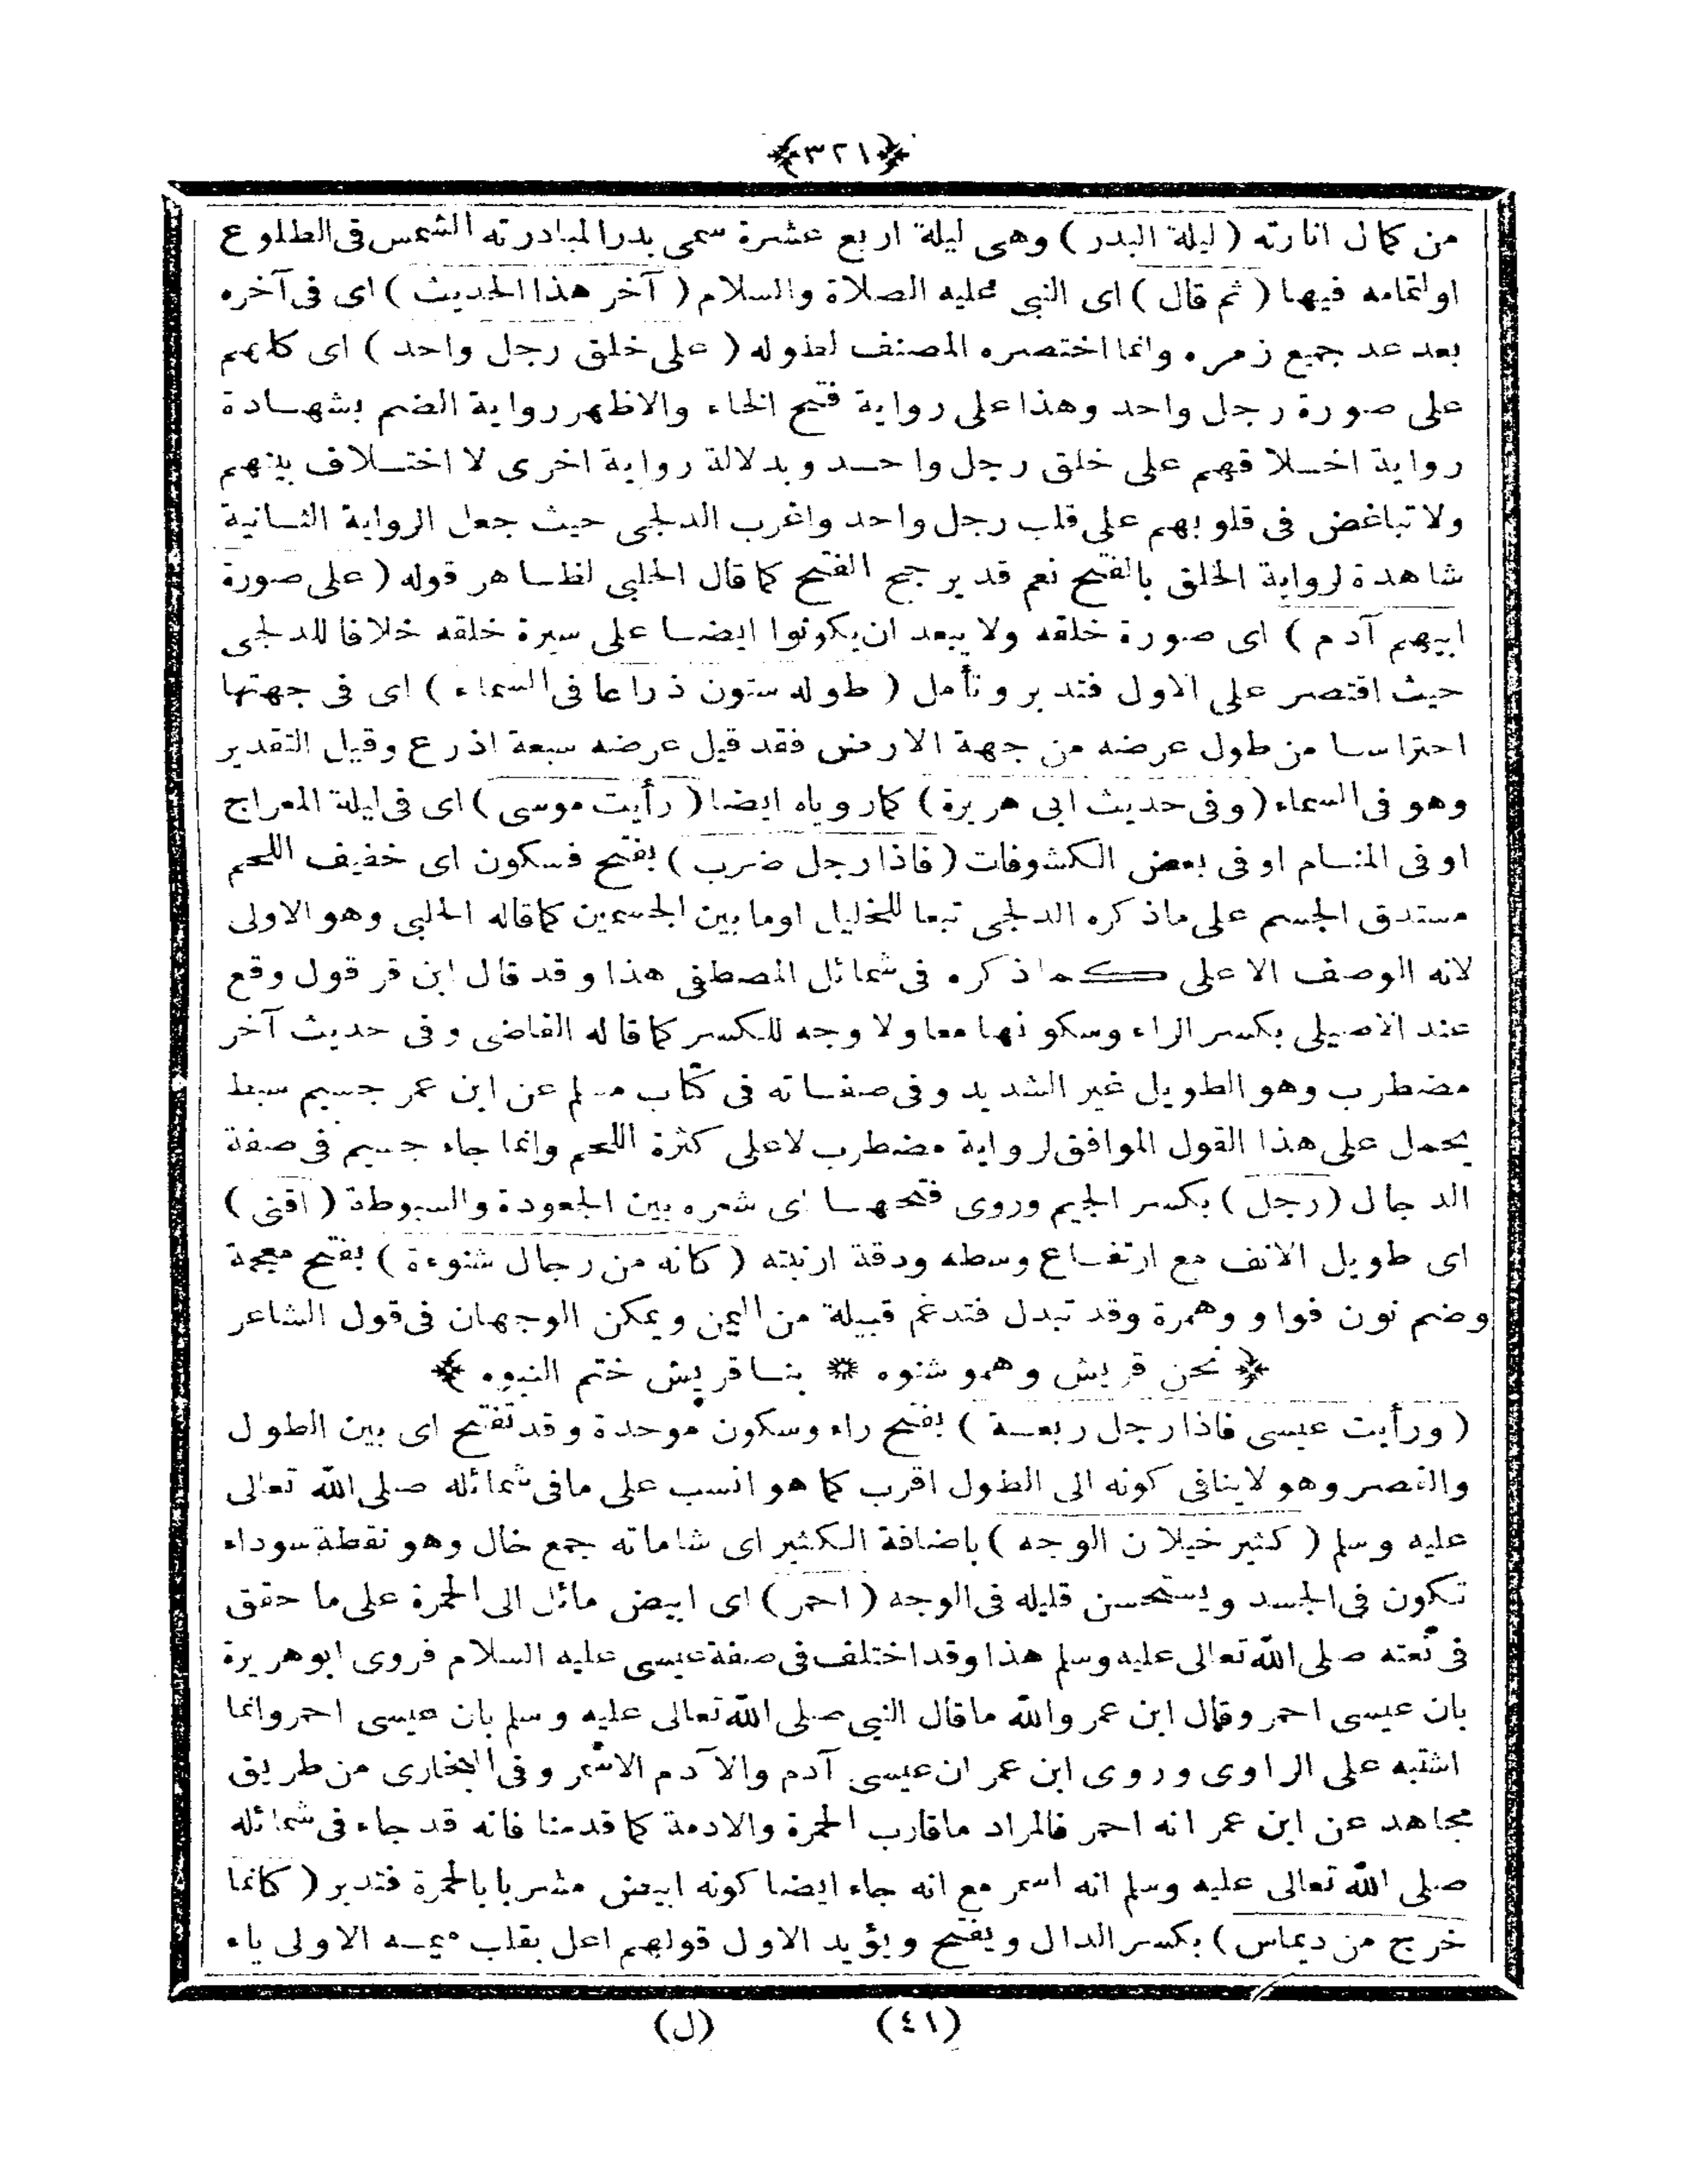 ﴿٣٢١﴾
من كمال انارته ( ليلة البدر ) وهى ليلة اربع عشرة سمى بدرا لمبادرته الشمس فى الطلوع
او لتمامه فيها ( ثم قال ) اى النبى عليه الصلاة والسلام ( آخر هذا الحديث ) اى فى آخره
بعد عد جميع زمره وانما اختصره المصنف لطوله ( على خلق رجل واحد ) اى كلهم
على صورة رجل واحد وهذا على رواية فتح الخاء والاظهر رواية الضم بشهادة
رواية اخلاقهم على خلق رجل واحد وبدلالة رواية اخرى لا اختلاف بينهم
ولا تباغض فى قلوبهم على قلب رجل واحد واغرب الدلجى حيث جعل الرواية الثانية
شاهدة لرواية الخلق بالفتح نعم قد يرجح الفتح كما قال الحلبى لظاهر قوله ( على صورة
ابيهم آدم ) اى صورة خلقه ولا يبعد ان يكونوا ايضا على سيرة خلقه خلافا للدلجى
حيث اقتصر على الاول فتدبر وتأمل ( طوله ستون ذراعا فى السماء ) اى فى جهتها
احتراسا من طول عرضه من جهة الارض فقد قيل عرضه سبعة اذرع وقيل التقدير
وهو فى السماء ( وفى حديث ابى هريرة ) كما روياه ايضا ( رأيت موسى ) اى فى ليلة المعراج
او فى المنام او فى بعض الكشوفات ( فاذا رجل ضرب ) بفتح فسكون اى خفيف اللحم
مستدق الجسم على ما ذكره الدلجى تبعا للخليل او ما بين الجسمين كما قاله الحلبى وهو الاولى
لانه الوصف الاعلى كما ذكره فى شمائل المصطفى هذا وقد قال ابن قرقول وقع
عند الاصيلى بكسر الراء وسكونها معا ولا وجه للكسر كما قاله القاضى وفى حديث آخر
مضطرب وهو الطويل غير الشديد وفى صفاته فى كتاب مسلم عن ابن عمر جسيم سبط
يحمل على هذا القول الموافق لرواية مضطرب لا على كثرة اللحم وانما جاء جسيم فى صفة
الدجال ( رجل ) بكسر الجيم وروى فتحها اى شعره بين الجعودة والسبوطة ( اقنى )
اى طويل الانف مع ارتفاع وسطه ودقة ارنبته ( كانه من رجال شنوءة ) بفتح معجمة
وضم نون فواو وهمزة وقد تبدل فتدغم قبيلة من اليمن ويمكن الوجهان فى قول الشاعر
﴿ نحن قريش وهمو شنوه * بنا قريش ختم النبوه ﴾
( ورأيت عيسى فاذا رجل ربعة ) بفتح راء وسكون موحدة وقد تفتح اى بين الطول
والقصر وهو لا ينافى كونه الى الطول اقرب كما هو انسب على ما فى شمائله صلى الله تعالى
عليه وسلم ( كثير خيلان الوجه ) باضافة الكثير اى شاماته جمع خال وهو نقطة سوداء
تكون فى الجسد ويستحسن قليله فى الوجه ( احمر ) اى ابيض مائل الى الحمرة على ما حقق
فى نعته صلى الله تعالى عليه وسلم هذا وقد اختلف فى صفة عيسى عليه السلام فروى ابو هريرة
بان عيسى احمر وقال ابن عمر والله ما قال النبى صلى الله تعالى عليه وسلم بان عيسى احمر وانما
اشتبه على الراوى وروى ابن عمر ان عيسى آدم والآدم الاسمر وفى البخارى من طريق
مجاهد عن ابن عمر انه احمر فالمراد ما قارب الحمرة والادمة كما قدمنا فانه قد جاء فى شمائله
صلى الله تعالى عليه وسلم انه اسمر مع انه جاء ايضا كونه ابيض مشربا بالحمرة فتدبر ( كانما
خرج من ديماس ) بكسر الدال ويفتح ويؤيد الاول قولهم اعل بقلب ميمه الاولى ياء
(٤١) (ل)